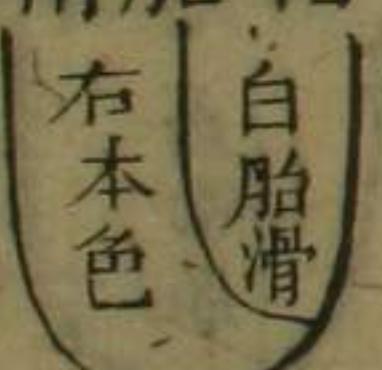 白胎滑
右本色